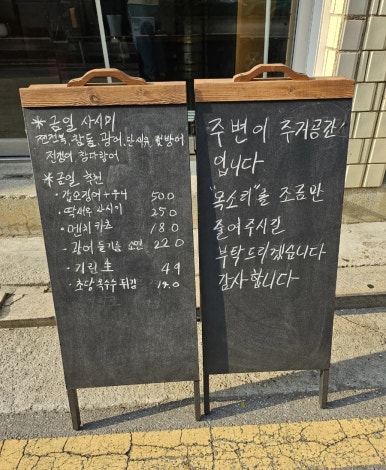 * 금일 사시미
전전복, 참돔, 광어, 단새우, 잿방어
전갱이, 참다랑어
* 금일 추천
· 갑오징어 + 우니 50.0
· 딱새우 사시미 25.0
· 멘치 카츠 18.0
· 광어 들기름 소면 22.0
· 기린 生 4.9
· 초당 옥수수 튀김 14.0
주변이 주거공간
입니다
"목소리"를 조금만
줄여주시길
부탁드리겠습니다
감사합니다